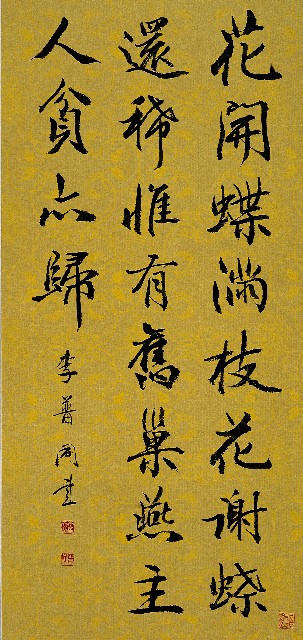 花開蝶滿枝花謝蝶
還稀惟有舊巢燕主
人貧亦歸
李普同書